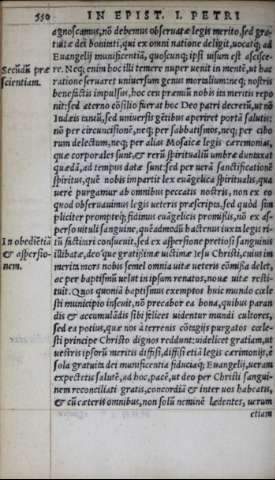 550 IN EPIST. I. PETRI
agnoscamus, nõ debemus obseruatæ legis merito, sed gra-
tuitæ dei bonitati, qui ex omni natione deligit, uocatq; ad
Euangelij munificentiã, quoscunq; ipsi uisum est asciscer-
Secũdũ præ
scientiam.
re. Neq; enim hoc illi temere nuper uenit in mentẽ, ut hac
ratione seruaret uniuersum genus mortalium: neq; nostris
beneficijs impulsus, hoc ceu præmiũ nobis its meritis repo
nit: sed æterno cõsilio fuerat hoc Deo patri decretũ, ut nõ
Iudæis tantũ, sed uniuersis gẽtibus aperiret portã salutis:
nõ per circuncisionẽ, neq; per sabbatismos, neq; per cibo
rum delectum, neq; per alias Mosaicæ legis cæremonias,
quæ corporales sunt, & rerũ spiritualiũ umbræ duntaxat
quædã, ad tempus datæ: sed per uerã sanctificationẽ
spiritus, quẽ nobis impartit lex euãgelica spiritualis, qua
uere purgamur ab omnibus peccatis nostris, non ex eo
quod obseruauimus legis ueteris præscripta, sed quòd sim
pliciter promptèq; fidimus euãgelicis promissis, nõ ex as-
perso uituli sanguine, quẽadmodũ hactenus iuxta legis ri-
In obediẽtiã
& aspersio-
nem.
tũ factitari consueuit, sed ex aspersione pretiosi sanguinis
illibatæ, deoq́ue gratissimæ uictimæ Iesu Christi, cuius im
merita mors nobis semel omnia uitæ ueteris cõmissa delet,
ac per baptismũ uelut in ipsum renatos, nouæ uitæ resti-
tuit. Quos quoniã baptismus exemptos huic mundo cœle
sti municipio inseuit, nõ precabor ea bona, quibus paran
dis & accumulãdis sibi felices uidentur mundi cultores,
sed ea potius, quæ nos à terrenis cõtagijs purgatos cœle-
sti principe Christo dignos reddunt: uidelicet gratiam, ut
uestris ipsorũ meritis diffisi, diffisi etiã legis cærimonijs, è
sola gratuita dei munificentia fiduciaq; Euangelij, ueram
expectetis salutẽ, ad hoc, pacẽ, ut deo per Christi sangui-
nem reconciliati gratis, concordiã & inter uos habeatis,
& cũ cæteris omnibus, non solũ neminẽ lædentes, uerum
etiam